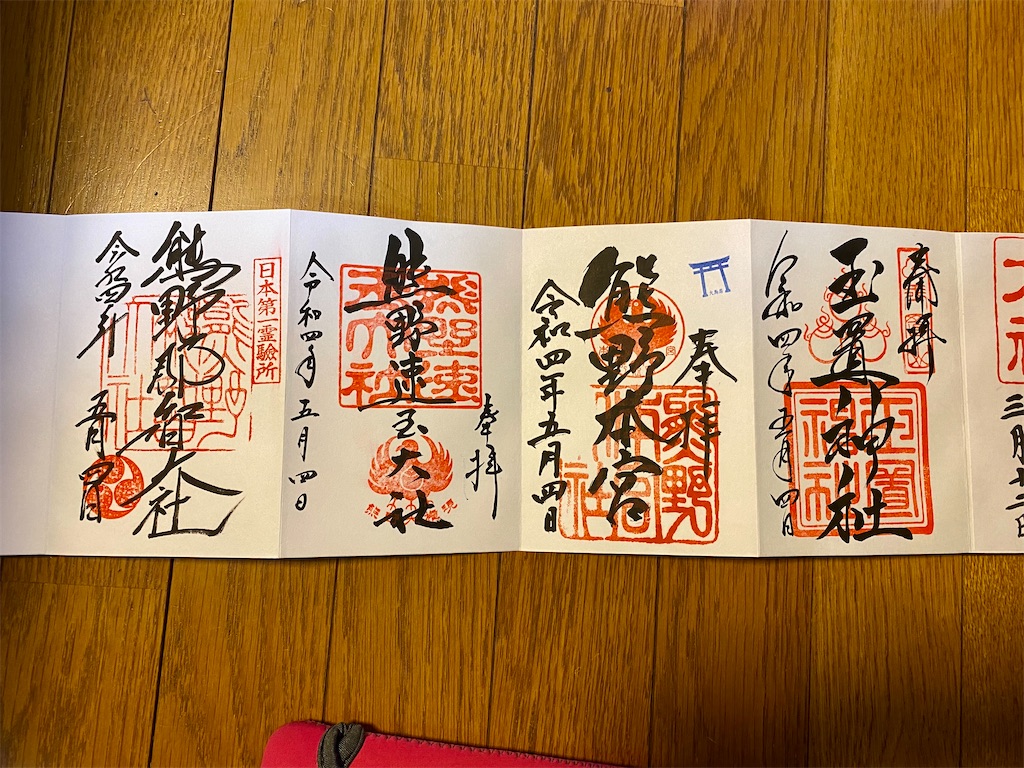 三月十二日
奉拝
玉置神社
令和四年五月四日
奉拝
熊野本宮
令和四年五月四日
奉拝
熊野速玉大社
令和四年五月四日
日本第一霊驗所
熊野那智大社
令和四年
五月四日